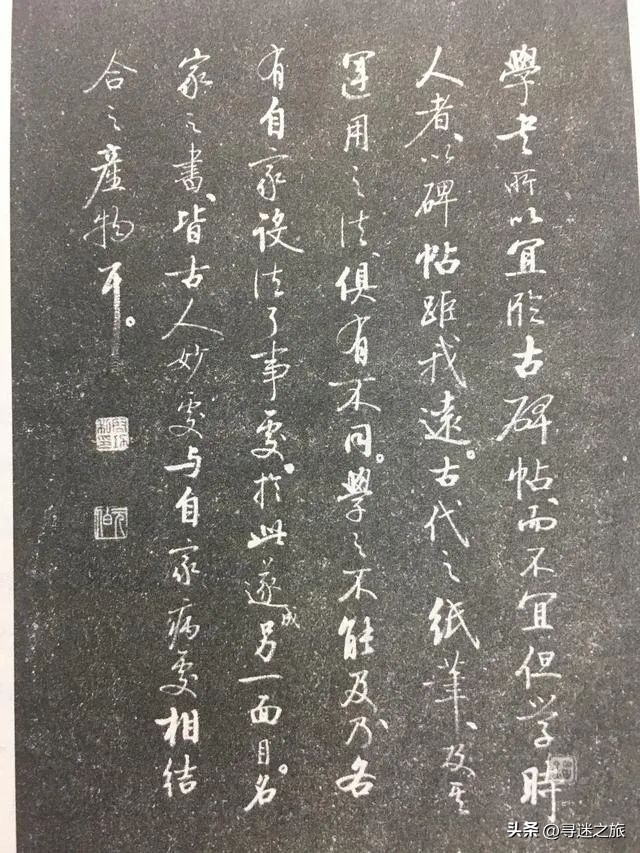 學書所以宜臨古碑帖、而不宜但學時
人者、以碑帖距我遠。古代之紙筆、及其
運用之法、俱有不同。學之不能及、乃各
有自家設法了事處。於此遂成另一面目。名
家之書、皆古人妙處與自家病處相結
合之產物耳。
头条 @寻迷之旅